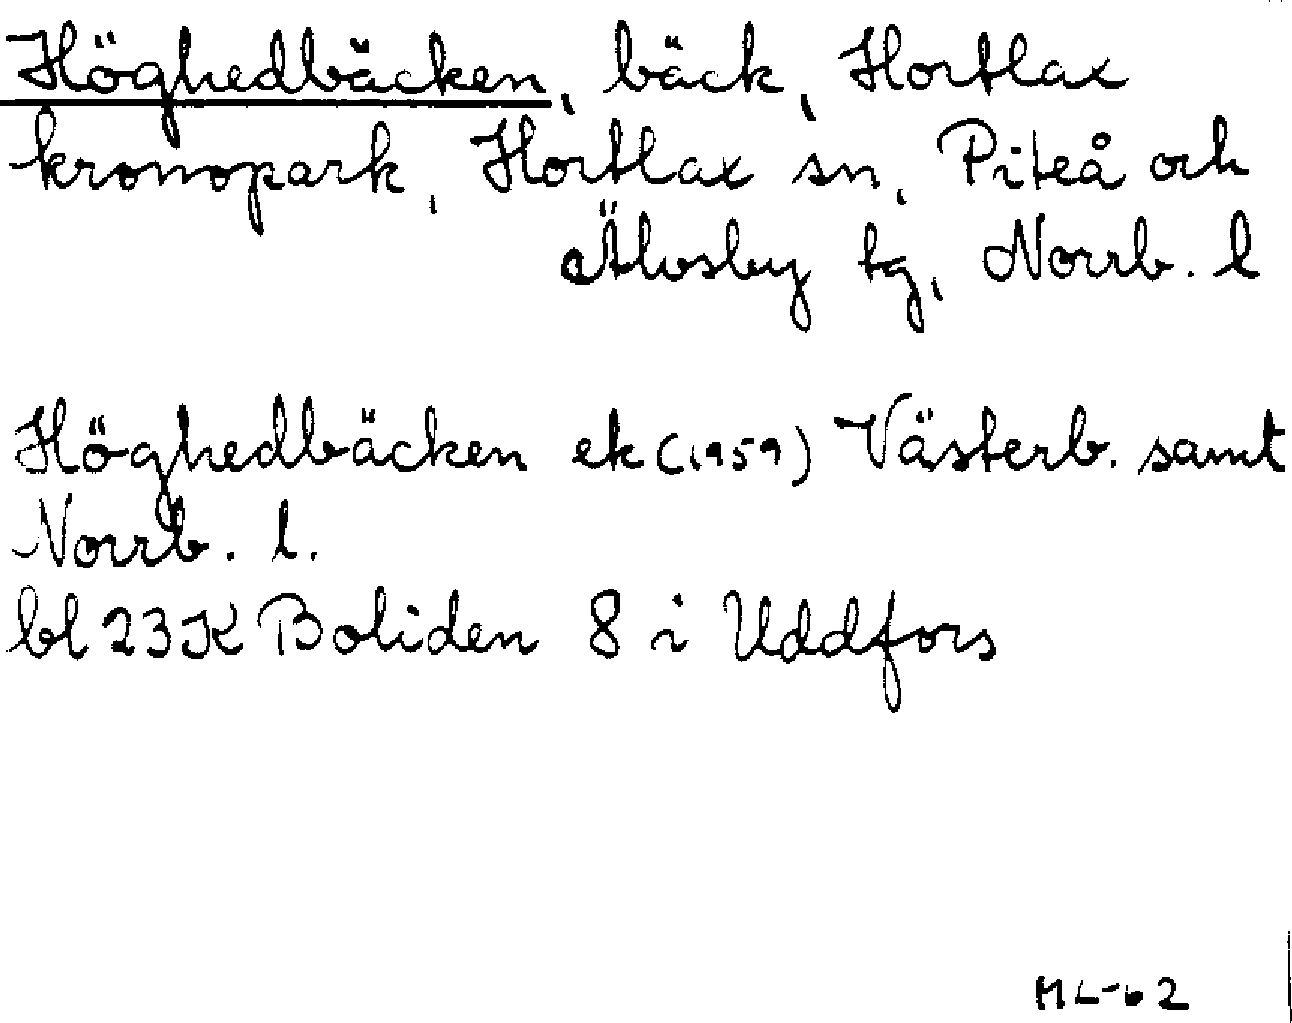 Höghedbäcken, bäck, Hortlax
kronopark, Hortlax sn, Piteå och
Älvsby tg, Norrb. l
Höghedbäcken ek (1959) Västerb. samt
Norrb. l.
bl 23K Boliden 8 i Uddfors
ML-62